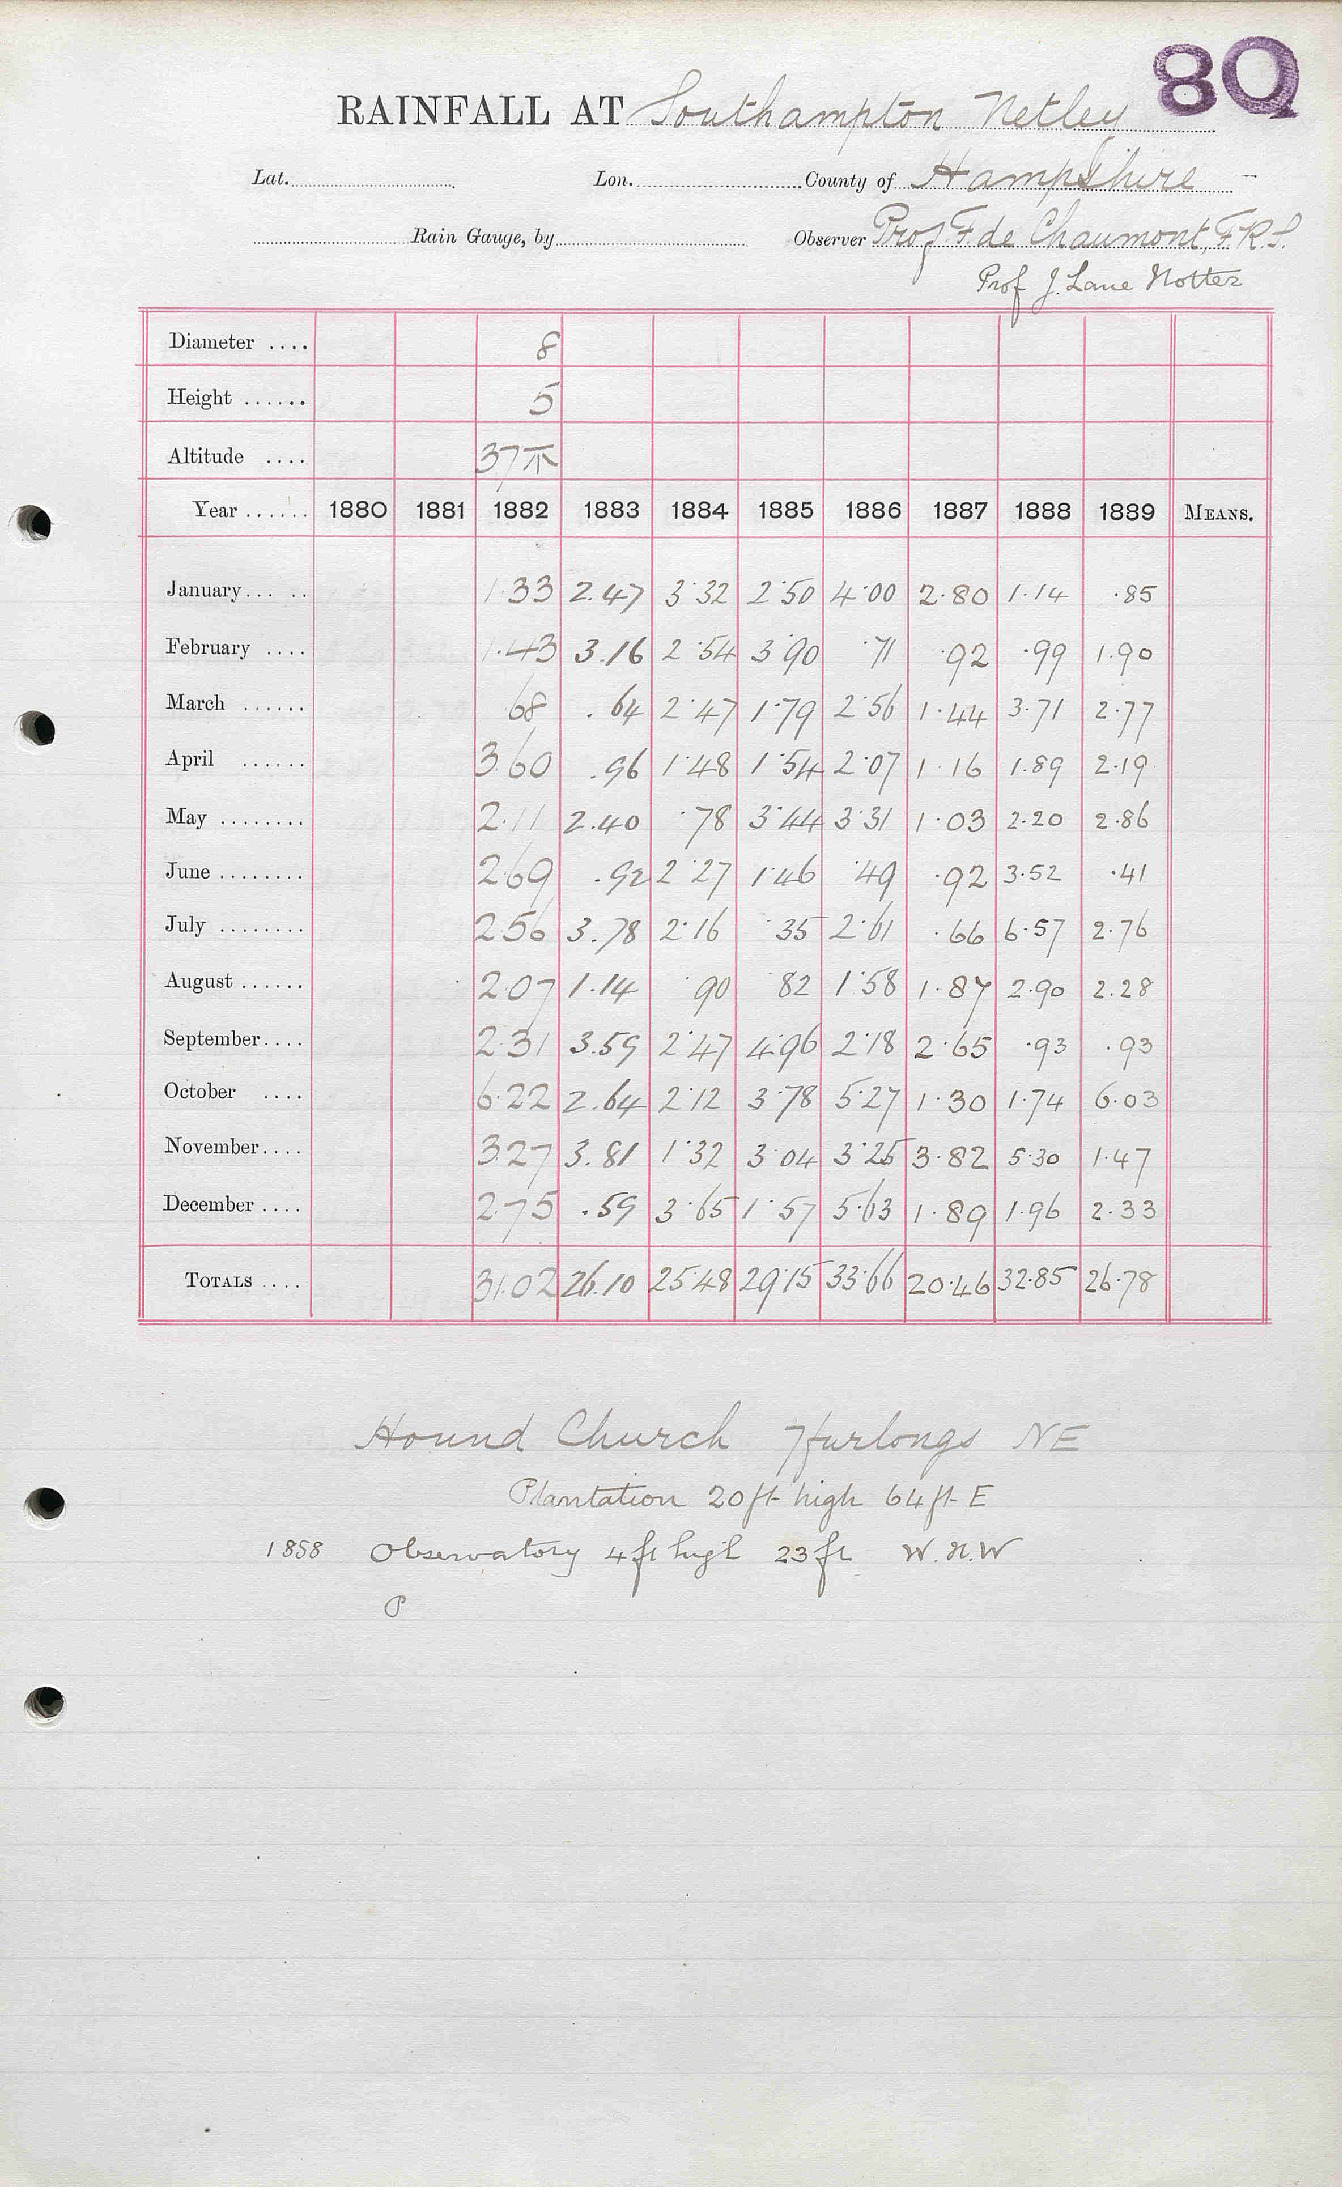 80
RAINFALL AT Southampton Netley
Lat. Lon. County of Hampshire
Rain Gauge, by Observer Prof F de Chaumont, F.R.S.
Prof J. Lane Notter
Diameter .... 8
Height ...... 5
Altitude .... 37
Year ...... 1880 1881 1882 1883 1884 1885 1886 1887 1888 1889 MEANS.
January... .. 1.33 2.47 3.32 2.50 4.00 2.80 1.14 .85
February .... 1.43 3.16 2.54 3.90 .71 .92 .99 1.90
March ...... 68 .64 2.47 1.79 2.56 1.44 3.71 2.77
April ...... 3.60 .96 1.48 1.54 2.07 1.16 1.89 2.19
May ........ 2.11 2.40 .78 3.44 3.31 1.03 2.20 2.86
June ........ 2.69 .92 2.27 1.46 .49 .92 3.52 .41
July ........ 2.56 3.78 2.16 .35 2.61 .66 6.57 2.76
August ...... 2.07 1.14 .90 .82 1.58 1.87 2.90 2.28
September.... 2.31 3.59 2.47 4.96 2.18 2.65 .93 .93
October .... 6.22 2.64 2.12 3.78 5.27 1.30 1.74 6.03
November.... 3.27 3.81 1.32 3.04 3.25 3.82 5.30 1.47
December .... 2.75 .59 3.65 1.57 5.63 1.89 1.96 2.33
TOTALS .... 31.02 26.10 25.48 29.15 33.66 20.46 32.85 26.78
Hound Church 7furlongs NE
Plantation 20ft high 64ft E
1888 Observatory 4ft high 23ft W.N.W
P